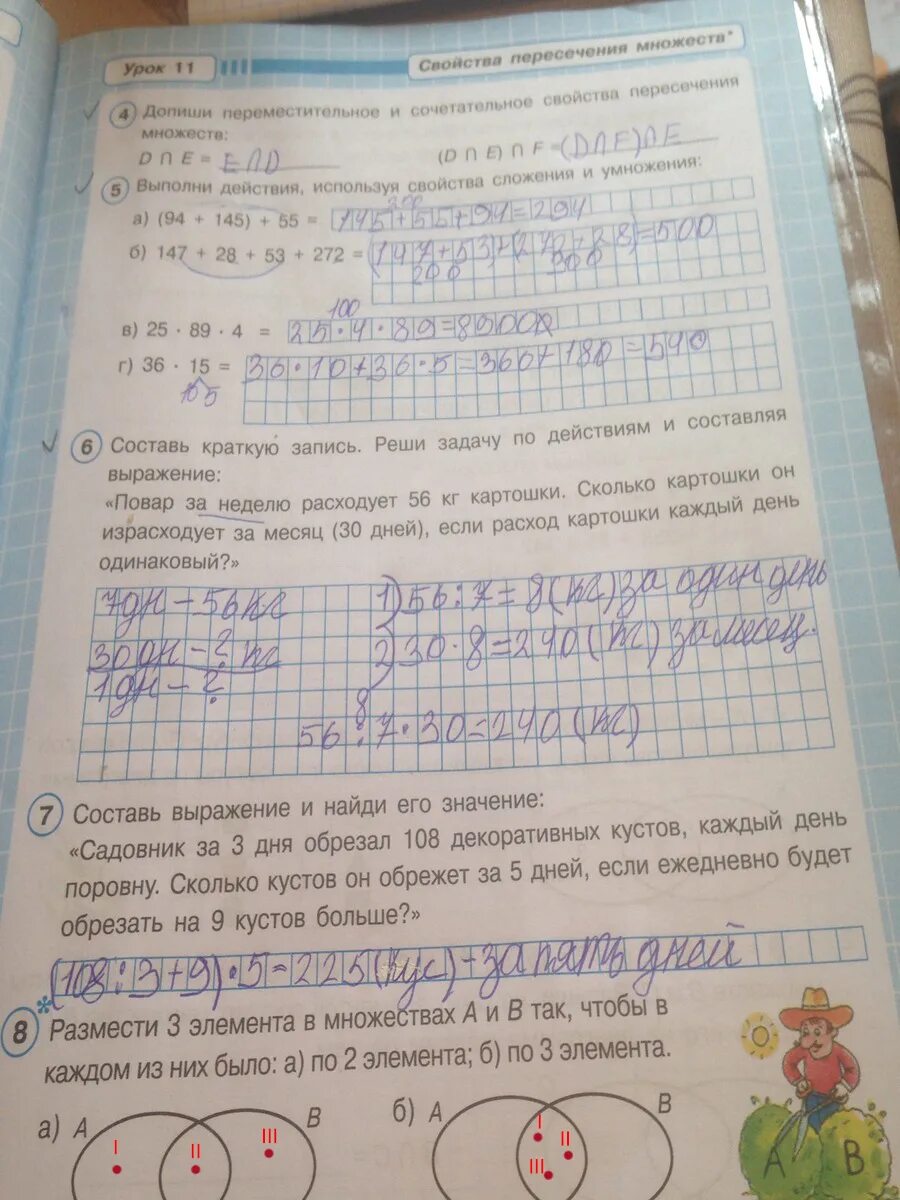 Урок 11
Свойства пересечения множеств*
4 Допиши переместительное и сочетательное свойства пересечения
множеств:
D ∩ E = E∩D (D ∩ E) ∩ F = (D∩F)∩E
5 Выполни действия, используя свойства сложения и умножения:
200
а) (94 + 145) + 55 = 145+55+94=294
б) 147 + 28 + 53 + 272 = (147+53)+(272+28)=500
200 300
100
в) 25 · 89 · 4 = 25·4·89=8900
г) 36 · 15 = 36·10+36·5=360+180=540
10 5
6 Составь краткую запись. Реши задачу по действиям и составляя
выражение:
«Повар за неделю расходует 56 кг картошки. Сколько картошки он
израсходует за месяц (30 дней), если расход картошки каждый день
одинаковый?»
7дн – 56кг 1) 56:7=8(кг) за один день
30дн – ? кг 2) 30·8=240(кг) за месец.
1дн – ?
8
56:7·30=240(кг)
7 Составь выражение и найди его значение:
«Садовник за 3 дня обрезал 108 декоративных кустов, каждый день
поровну. Сколько кустов он обрежет за 5 дней, если ежедневно будет
обрезать на 9 кустов больше?»
(108:3+9)·5=225(кус) – за пять дней
8* Размести 3 элемента в множествах A и B так, чтобы в
каждом из них было: а) по 2 элемента; б) по 3 элемента.
а) A I II III B б) A I II III B
A B